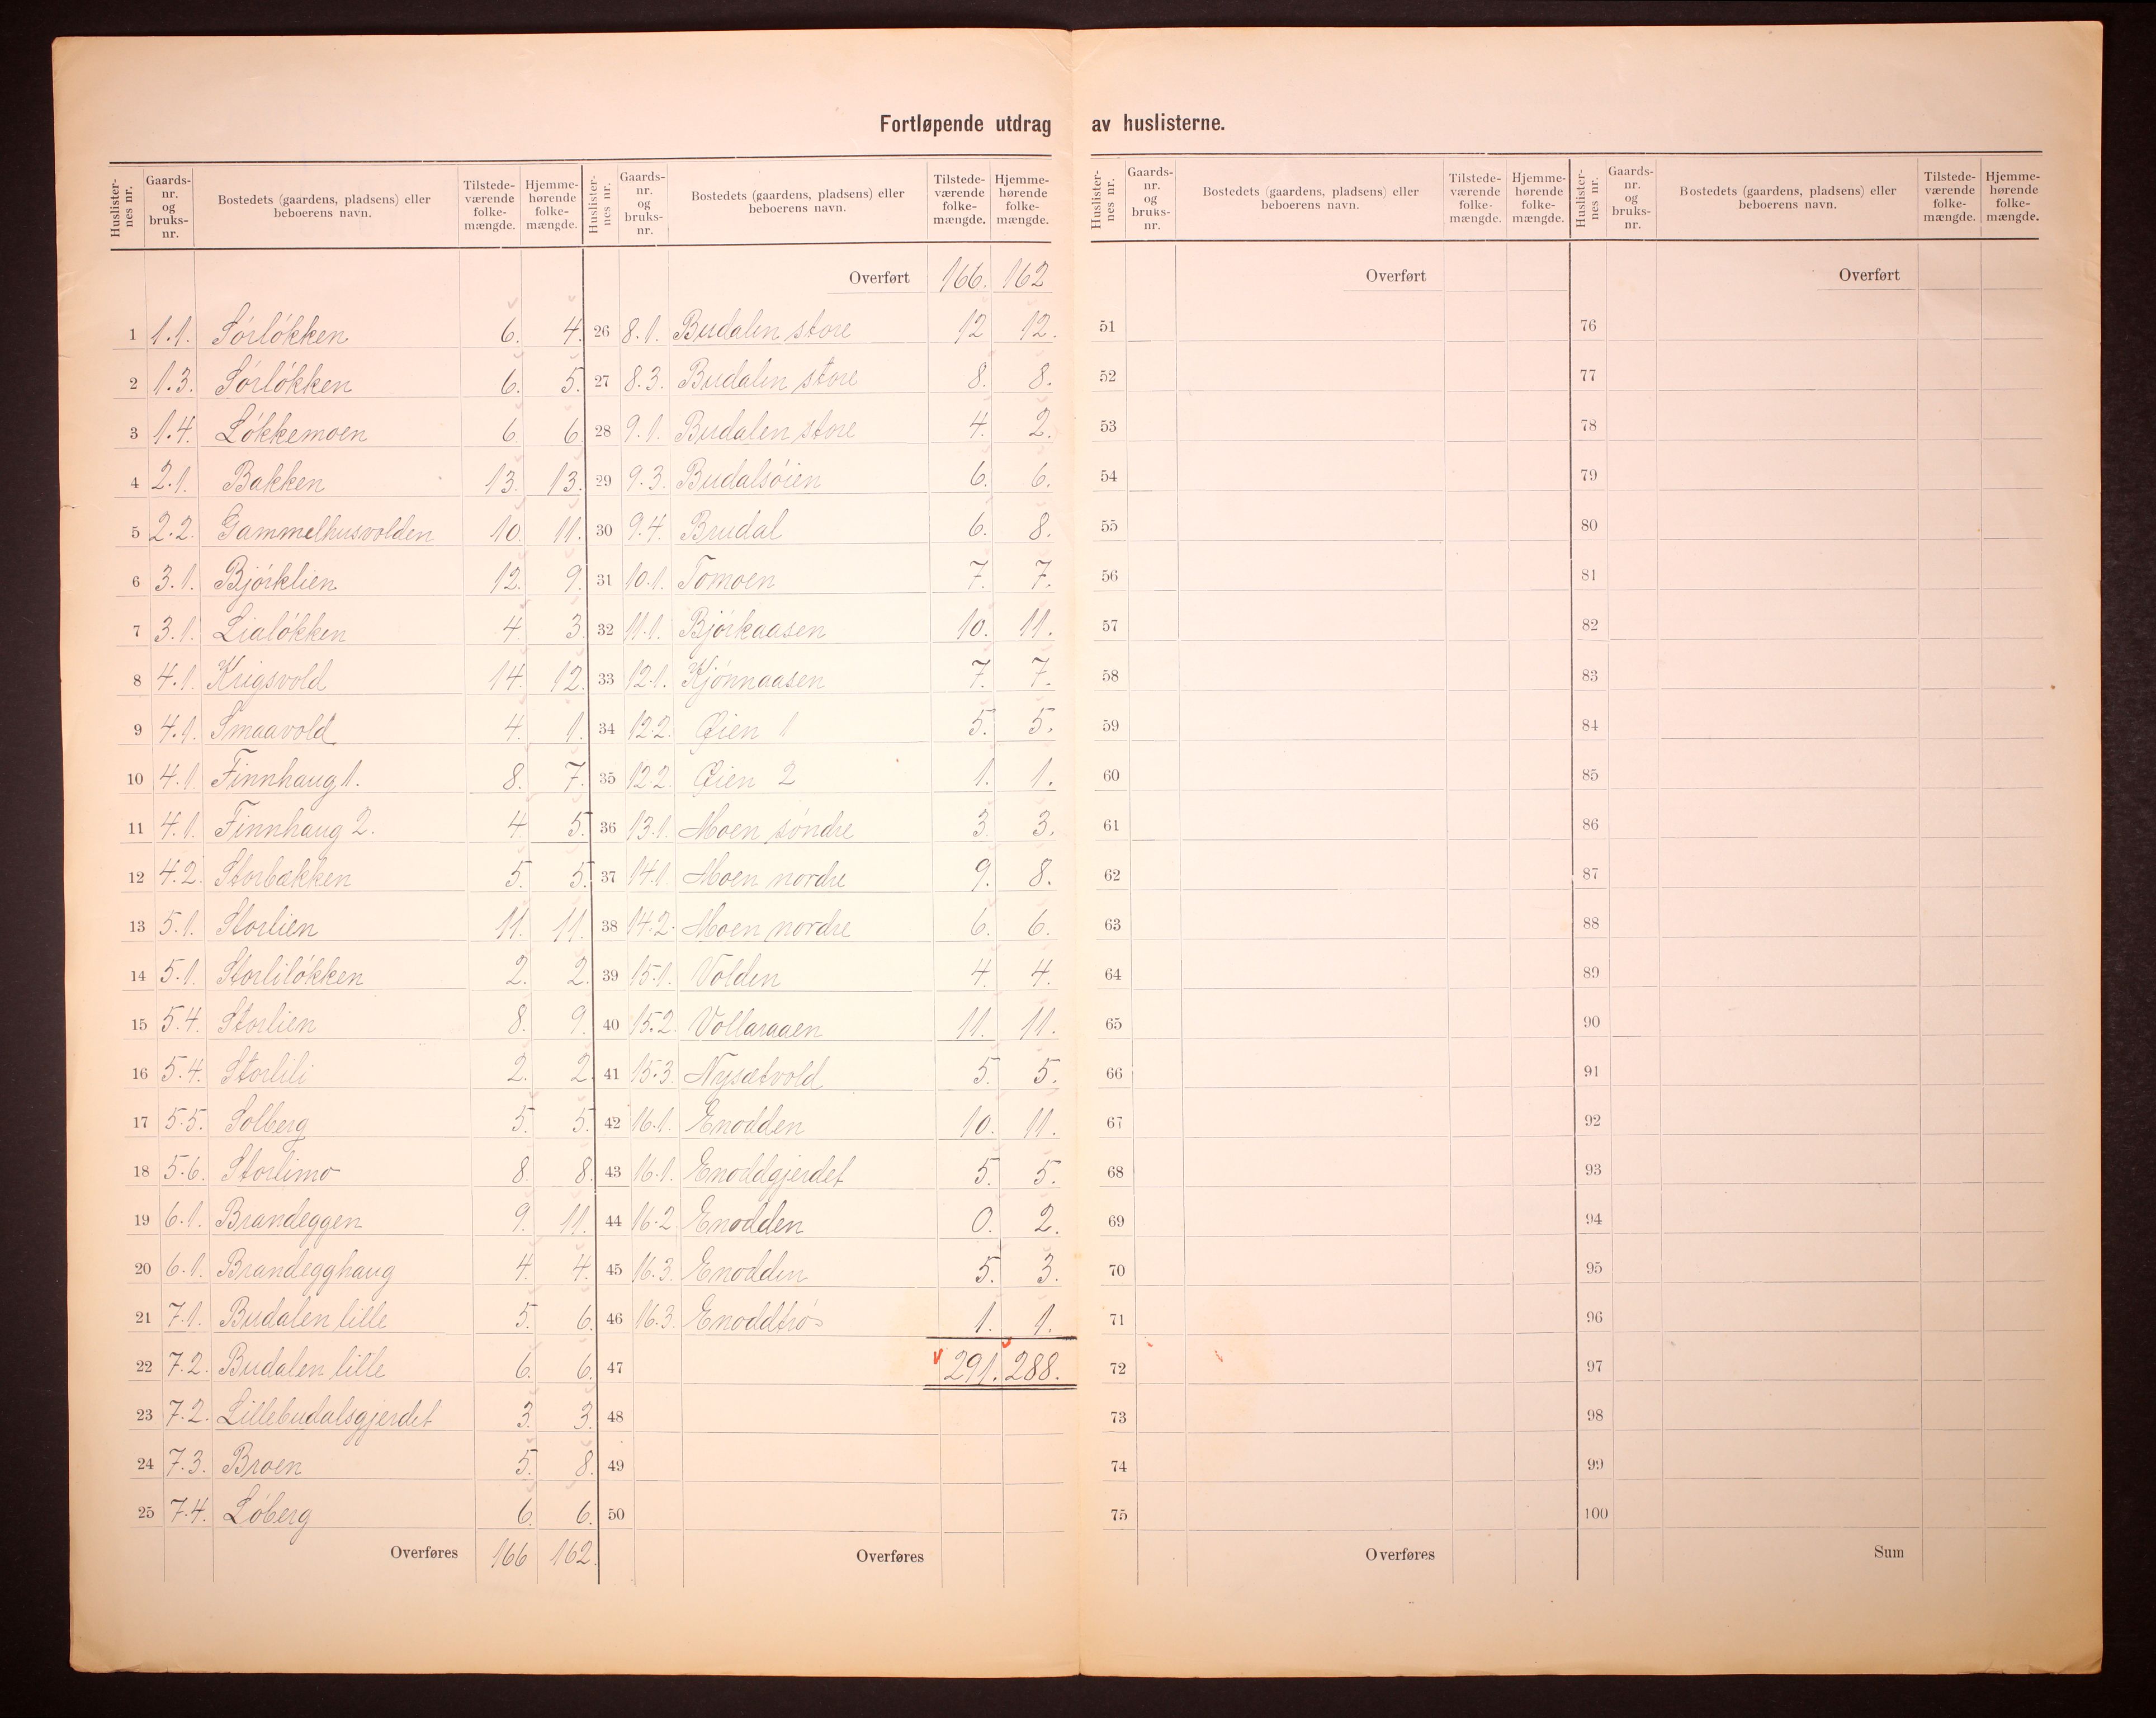 Fortløpende utdrag av huslisterne.
Huslister-nes nr. Gaards-nr. og bruks-nr. Bostedets (gaardens, pladsens) eller beboerens navn. Tilstede-værende folke-mængde. Hjemme-hørende folke-mængde.
1 1.1. Sórlókken 6. 4.
2 1.3. Sórlókken 6. 5.
3 1.4. Lókkemoen 6 6
4 2.1. Bakken 13. 13.
5 2.2. Gammelhusvolden 10. 11.
6 3.1. Bjórklien 12. 9.
7 3.1. Lialókken 4. 3
8 4.1. Krigsvold 14. 12.
9 4.1. Smaavold 4. 1.
10 4.1. Finnhaug 1. 8. 7.
11 4.1. Finnhaug 2. 4. 5.
12 4.2. Storbækken 5. 5.
13 5.1. Storlien 11. 11.
14 5.1. Storlilókken 2. 2.
15 5.4. Storlien 8. 9.
16 5.4. Storlili 2. 2.
17 5.5. Solberg 5. 5.
18 5.6. Storlimo 8. 8.
19 6.1. Brandeggen 9. 11.
20 6.1. Brandegghaug 4. 4.
21 7.1. Budalen lille 5. 6.
22 7.2. Budalen lille 6. 6.
23 7.2. Lillebudalsgjerdet 3. 3.
24 7.3. Broen 5. 8.
25 7.4. Lóberg 6. 6.
Overføres 166 162.
Huslister-nes nr. Gaards-nr. og bruks-nr. Bostedets (gaardens, pladsens) eller beboerens navn. Tilstede-værende folke-mængde. Hjemme-hørende folke-mængde.
Overført 166. 162
26 8.1. Budalen store 12 12.
27 8.3. Budalen store 8. 8.
28 9.1. Budalen store 4. 2.
29 9.3. Budalsóien 6. 6.
30 9.4. Brudal 6. 8.
31 10.1. Tomoen 7. 7.
32 11.1. Bjórkaasen 10. 11.
33 12.1. Kjónnaasen 7. 7.
34 12.2. Øien 1 5. 5.
35 12.2. Øien 2 1. 1.
36 13.1. Moen sóndre 3. 3.
37 14.1 Moen nordre 9. 8.
38 14.2. Moen nordre 6. 6.
39 15.1. Volden 4. 4.
40 15.2. Vollaraaen 11. 11.
41 15.3. Nysætvold 5. 5.
42 16.1. Enodden 10. 11.
43 16.1. Enoddgjerdet 5. 5.
44 16.2 Enodden 0. 2.
45 16.3. Enodden 5. 3.
46 16.3. Enoddtrø 1. 1.
47 291. 288.
48
49
50
Overføres
Huslister-nes nr. Gaards-nr. og bruks-nr. Bostedets (gaardens, pladsens) eller beboerens navn. Tilstede-værende folke-mængde. Hjemme-hørende folke-mængde.
Overført
51
52
53
54
55
56
57
58
59
60
61
62
63
64
65
66
67
68
69
70
71
72
73
74
75
Overføres
Huslister-nes nr. Gaards-nr. og bruks-nr. Bostedets (gaardens, pladsens) eller beboerens navn. Tilstede-værende folke-mængde. Hjemme-hørende folke-mængde.
Overført
76
77
78
79
80
81
82
83
84
85
86
87
88
89
90
91
92
93
94
95
96
97
98
99
100
Sum